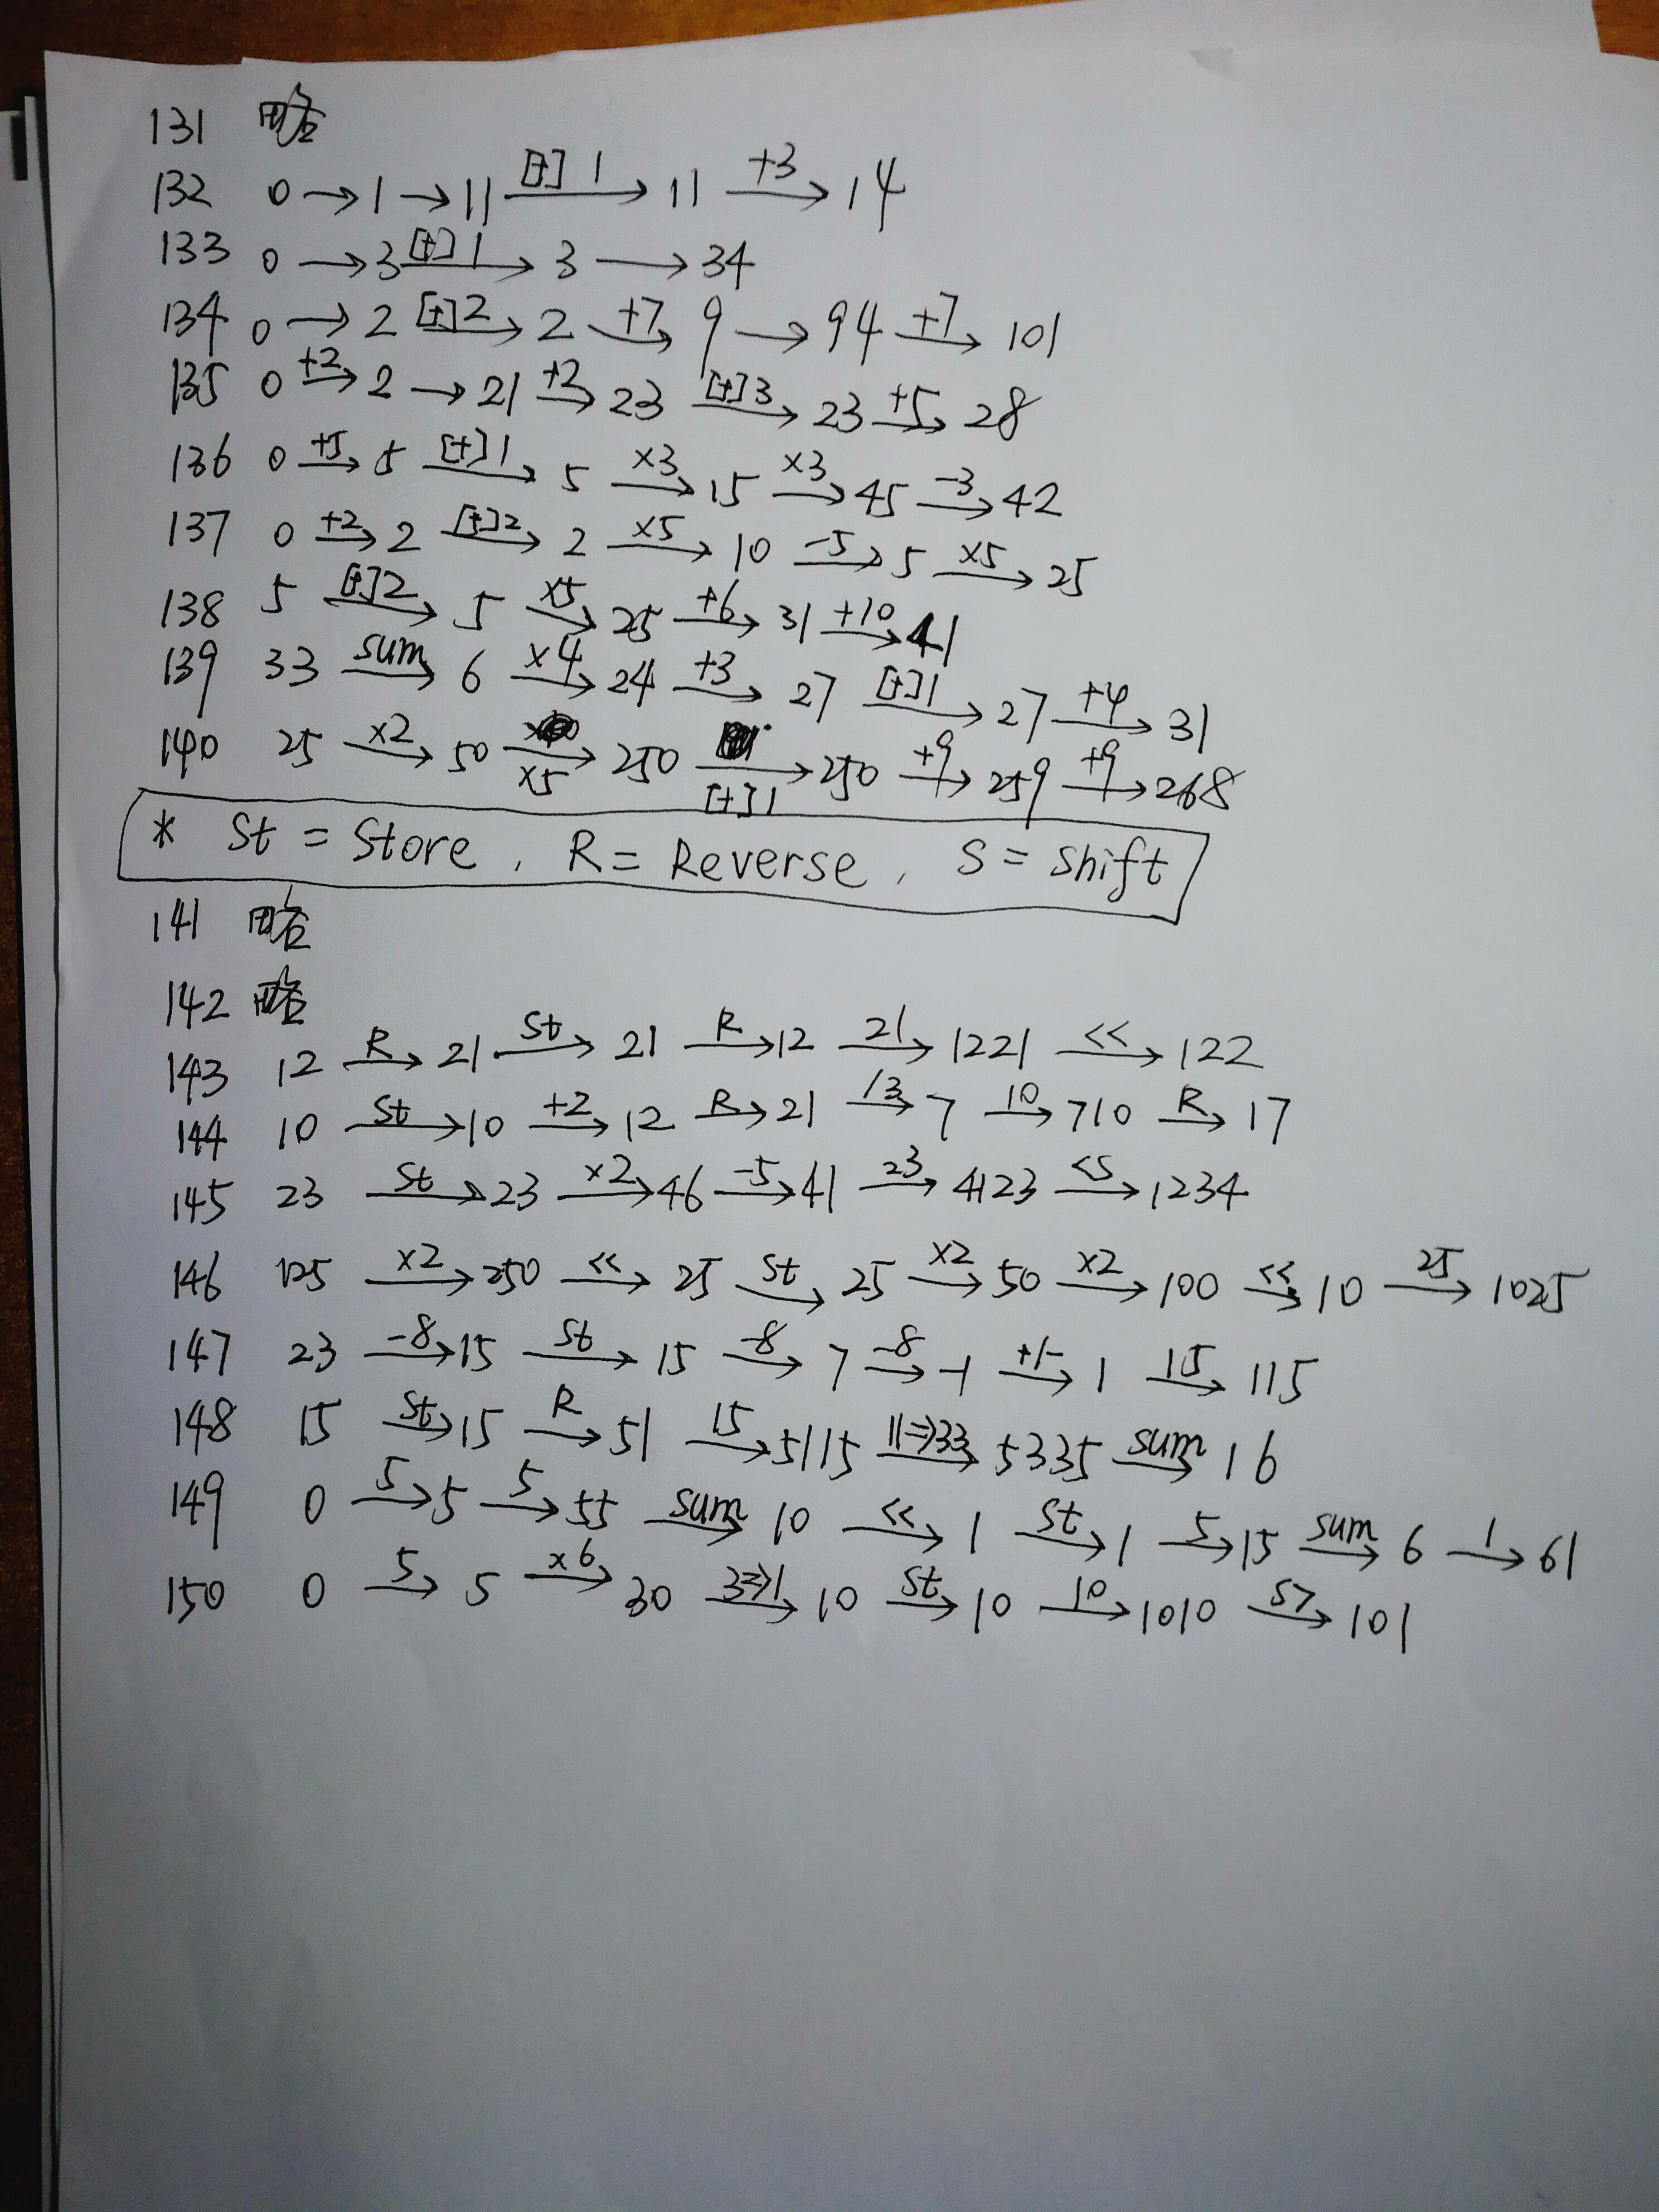 131 略
132 0 → 1 → 11 [+]1→ 11 +3→ 14
133 0 → 3 [+]1→ 3 → 34
134 0 → 2 [+]2→ 2 +7→ 9 → 94 +7→ 101
135 0 +2→ 2 → 21 +2→ 23 [+]3→ 23 +5→ 28
136 0 +5→ 5 [+]1→ 5 ×3→ 15 ×3→ 45 -3→ 42
137 0 +2→ 2 [+]2→ 2 ×5→ 10 -5→ 5 ×5→ 25
138 5 [+]2→ 5 ×5→ 25 +6→ 31 +10→ 41
139 33 sum→ 6 ×4→ 24 +3→ 27 [+]1→ 27 +4→ 31
140 25 ×2→ 50 ×5→ 250 [+]1→ 250 +9→ 259 +9→ 268
* St = Store, R = Reverse, S = Shift
141 略
142 略
143 12 R→ 21 St→ 21 R→ 12 21→ 1221 <<→ 122
144 10 St→ 10 +2→ 12 R→ 21 /3→ 7 10→ 710 R→ 17
145 23 St→ 23 ×2→ 46 -5→ 41 23→ 4123 <S→ 1234
146 125 ×2→ 250 <<→ 25 St→ 25 ×2→ 50 ×2→ 100 <<→ 10 25→ 1025
147 23 -8→ 15 St→ 15 -8→ 7 -8→ -1 +/-→ 1 15→ 115
148 15 St→ 15 R→ 51 15→ 5115 11=>33→ 5335 sum→ 16
149 0 5→ 5 5→ 55 sum→ 10 <<→ 1 St→ 1 5→ 15 sum→ 6 1→ 61
150 0 5→ 5 ×6→ 30 3=>1→ 10 St→ 10 10→ 1010 S>→ 101